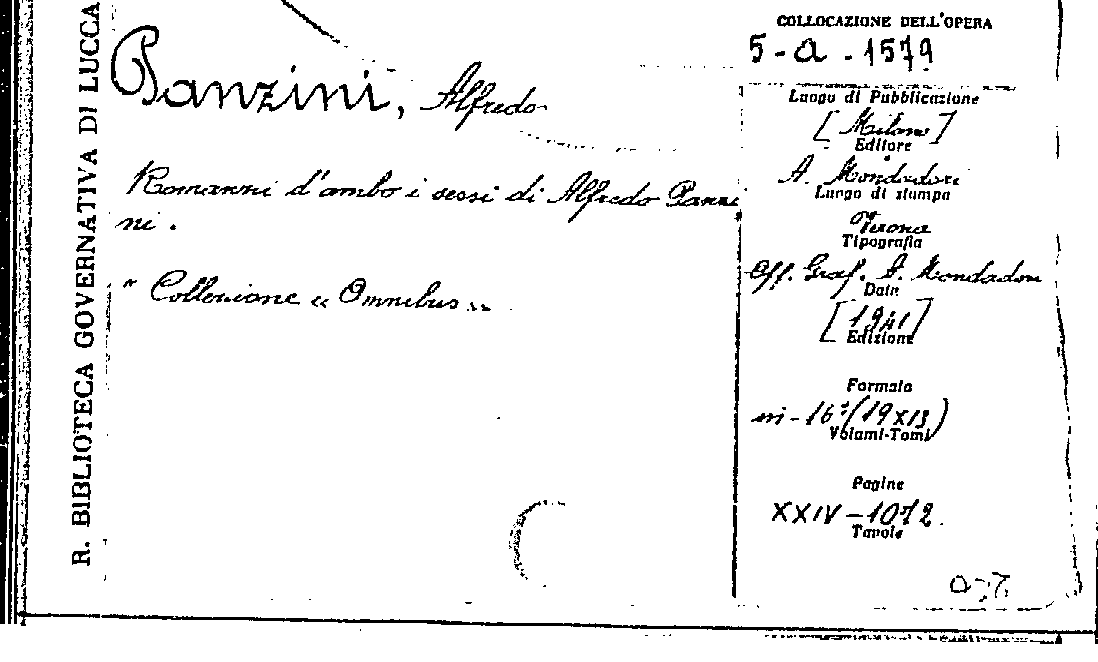 R. BIBLIOTECA GOVERNATIVA DI LUCCA
Panzini, Alfredo
Romanni d'ambo i sessi di Alfredo Panzi
ni.
" Collezione « Omnibus »
COLLOCAZIONE DELL'OPERA
5-a-1579
Luogo di Pubblicazione
[Milano]
Editore
A. Mondadori
Luogo di stampa
Verona
Tipografia
Off. Graf. A. Mondadori
Data
[1941]
Edizione
Formato
in-16º(19x13)
Volumi-Tomi
Pagine
XXIV-1072.
Tavole